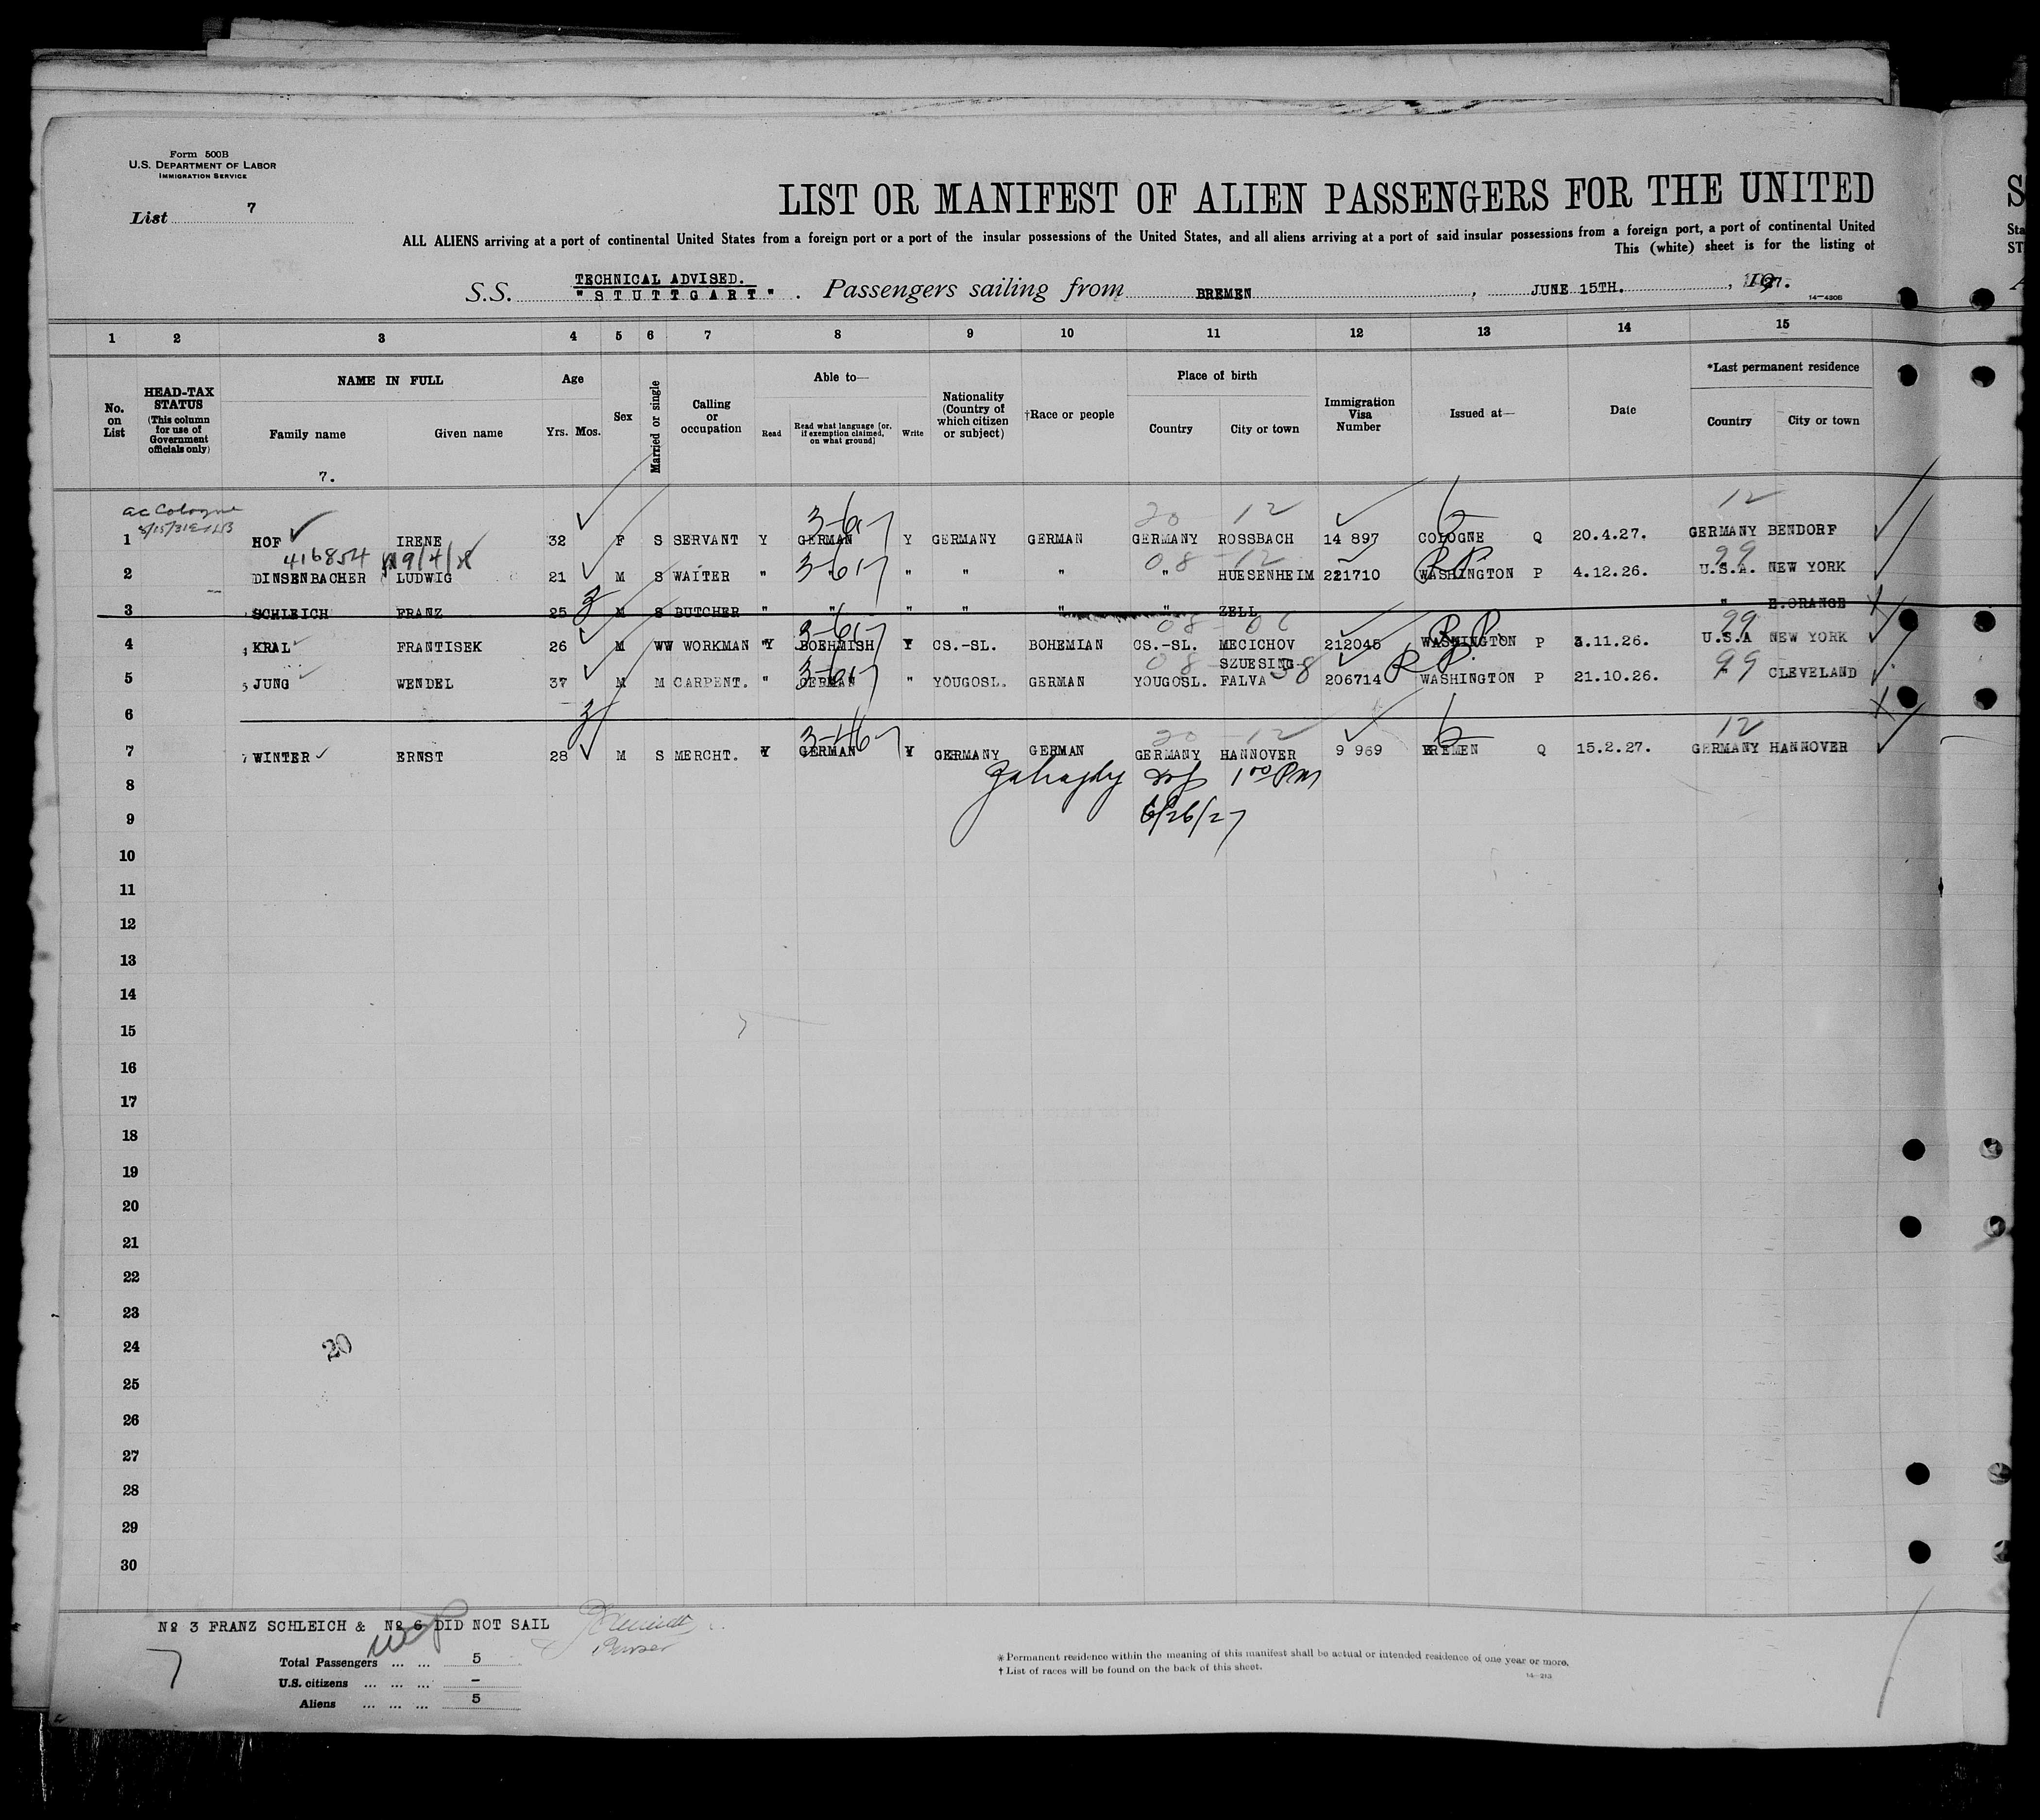 Form 500B
U.S. DEPARTMENT OF LABOR
IMMIGRATION SERVICE
List 7
LIST OR MANIFEST OF ALIEN PASSENGERS FOR THE UNITED
ALL ALIENS arriving at a port of continental United States from a foreign port or a port of the insular possessions of the United States, and all aliens arriving at a port of said insular possessions from a foreign port, a port of continental United
This (white) sheet is for the listing of
TECHNICAL ADVISED.
S.S. "STUTTGART". Passengers sailing from BREMEN, JUNE 15TH., 1927.
14—430B
1 2 3 4 5 6 7 8 9 10 11 12 13 14 15
No. on List
HEAD-TAX STATUS (This column for use of Government officials only)
NAME IN FULL Family name Given name
Age Yrs. Mos.
Sex
Married or single
Calling or occupation
Able to— Read Read what language [or, if exemption claimed, on what ground] Write
Nationality (Country of which citizen or subject)
†Race or people
Place of birth Country City or town
Immigration Visa Number
Issued at—
Date
*Last permanent residence Country City or town
7.
ac Cologne
3-61 20 12 12
1 HOF IRENE 32 F S SERVANT Y GERMAN Y GERMANY GERMAN GERMANY ROSSBACH 14 897 COLOGNE Q 20.4.27. GERMANY BENDORF
416854 3-61 08-12 R.P. 99
2 DINSENBACHER LUDWIG 21 M S WAITER " " " " " HUESENHEIM 221710 WASHINGTON P 4.12.26. U.S.A. NEW YORK
3 SCHLEICH FRANZ 25 M S BUTCHER " " " " " " ZELL " E.ORANGE X
3-61 08-06 R.P. 99
4 KRAL FRANTISEK 26 M WW WORKMAN "Y BOEHMISH Y CS.-SL. BOHEMIAN CS.-SL. MECICHOV 212045 WASHINGTON P 3.11.26. U.S.A NEW YORK
3-61 08-58 R.P. 99
5 JUNG WENDEL 37 M M CARPENT. " GERMAN " YOUGOSL. GERMAN YOUGOSL. SZUESING-FALVA 206714 WASHINGTON P 21.10.26. " CLEVELAND
6 X
3-46 20-12 12
7 WINTER ERNST 28 M S MERCHT. Y GERMAN Y GERMANY GERMAN GERMANY HANNOVER 9 969 BREMEN Q 15.2.27. GERMANY HANNOVER
8 1 00 PM
9 6/26/27
10
11
12
13
14
15
16
17
18
19
20
21
22
23
24 20
25
26
27
28
29
30
Nº 3 FRANZ SCHLEICH & Nº 6 DID NOT SAIL
Purser
7
Total Passengers ... ... 5
U.S. citizens ... ... ... –
Aliens ... ... ... 5
* Permanent residence within the meaning of this manifest shall be actual or intended residence of one year or more.
† List of races will be found on the back of this sheet.
14—213